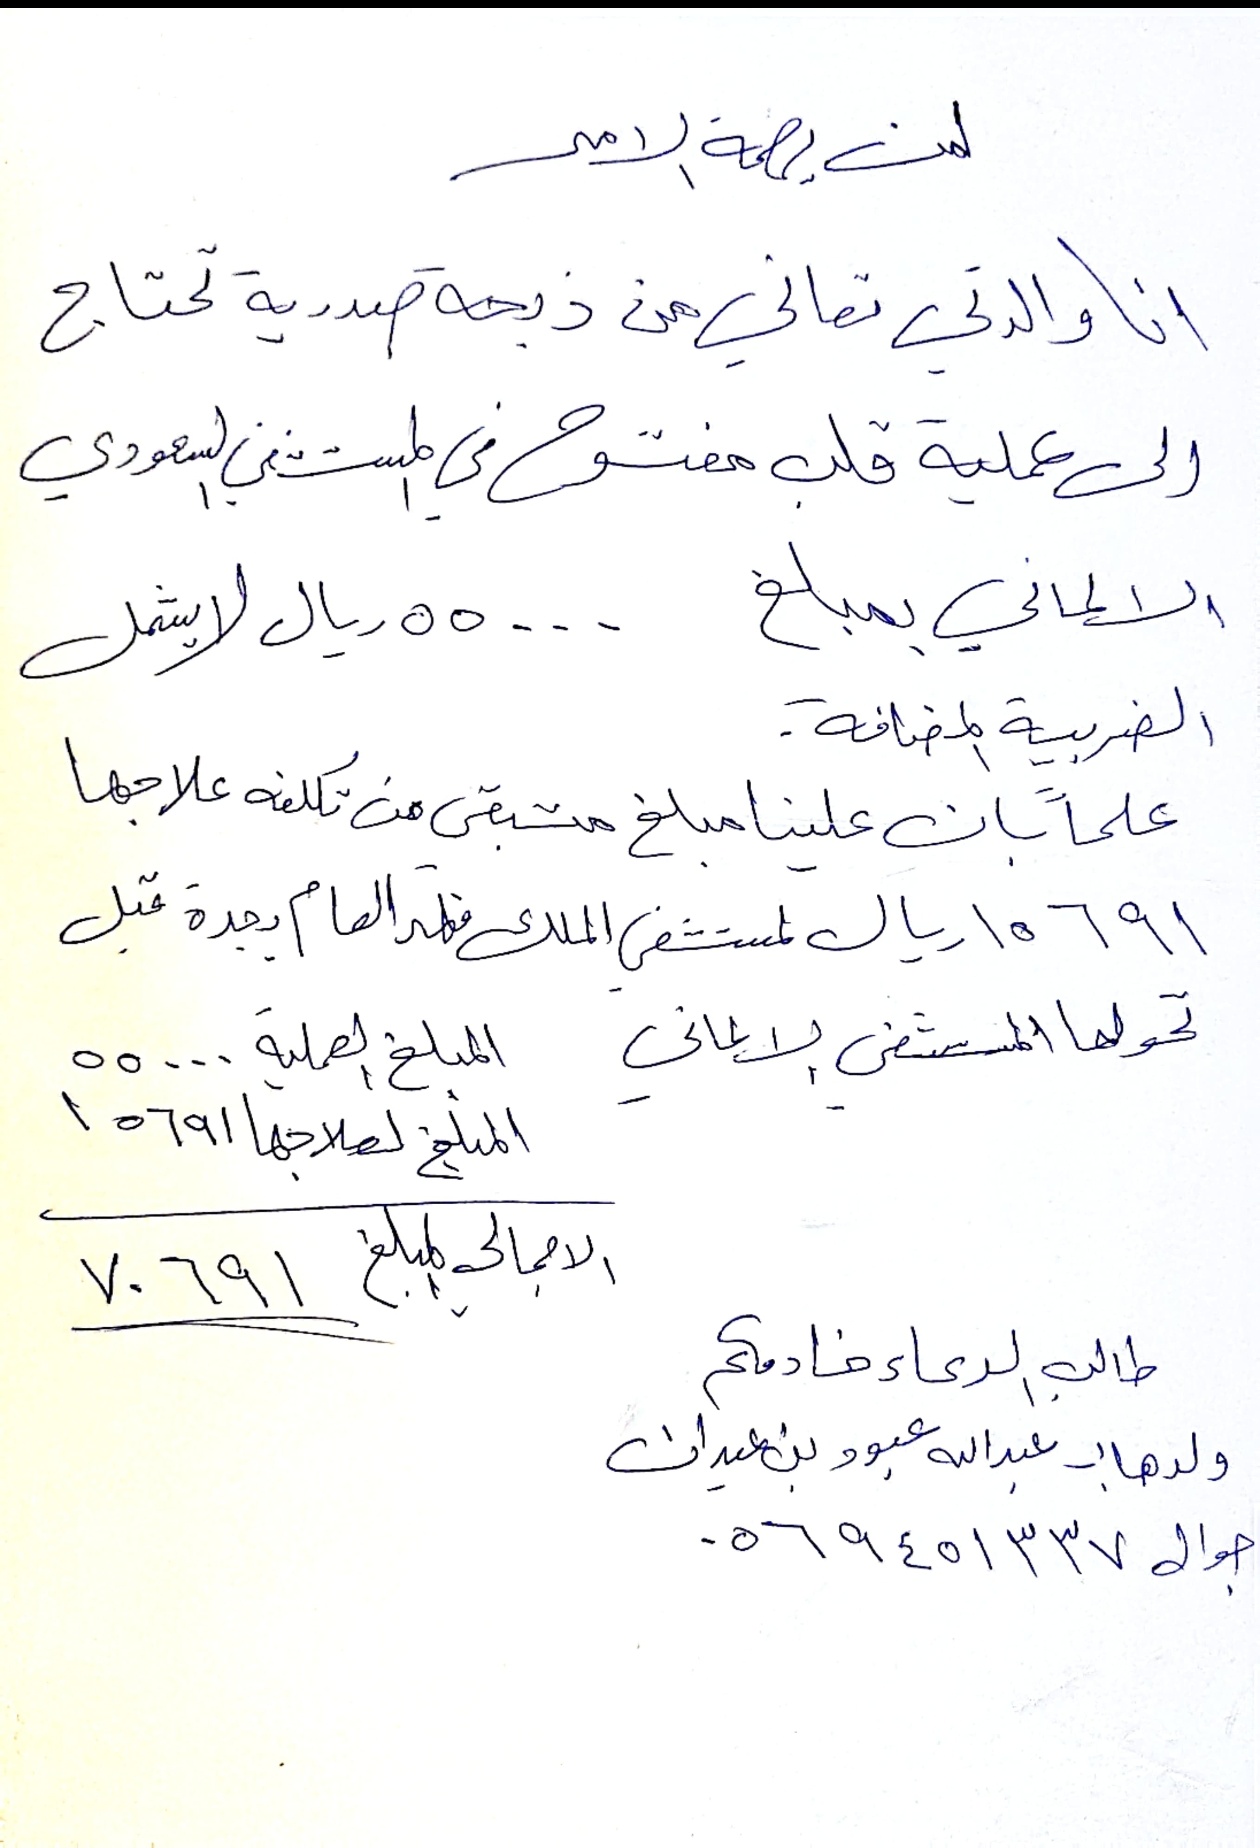 لمن يهمة الامر
انا والدتي تعاني من ذبحه صدرية تحتاج
الى عملية قلب مفتوح في المستشفى السعودي
الالماني بمبلغ ٥٥٠٠٠ ريال لا يشمل
الضريبية المضافة .
علماً بان علينا مبلغ متبقي من تكلفه علاجها
١٥٦٩١ ريال لمستشفى الملك فهد العام بجدة قبل
تحولها المستشفى الالماني
المبلغ العملية ٥٥٠٠٠
المبلغ لعلاجها ١٥٦٩١
الاجمالي المبلغ ٧٠٦٩١
طالب الدعاء خادمكم
ولدها / عبدالله عبود بن عيدان
جوال ٠٥٦٩٤٥١٣٣٧